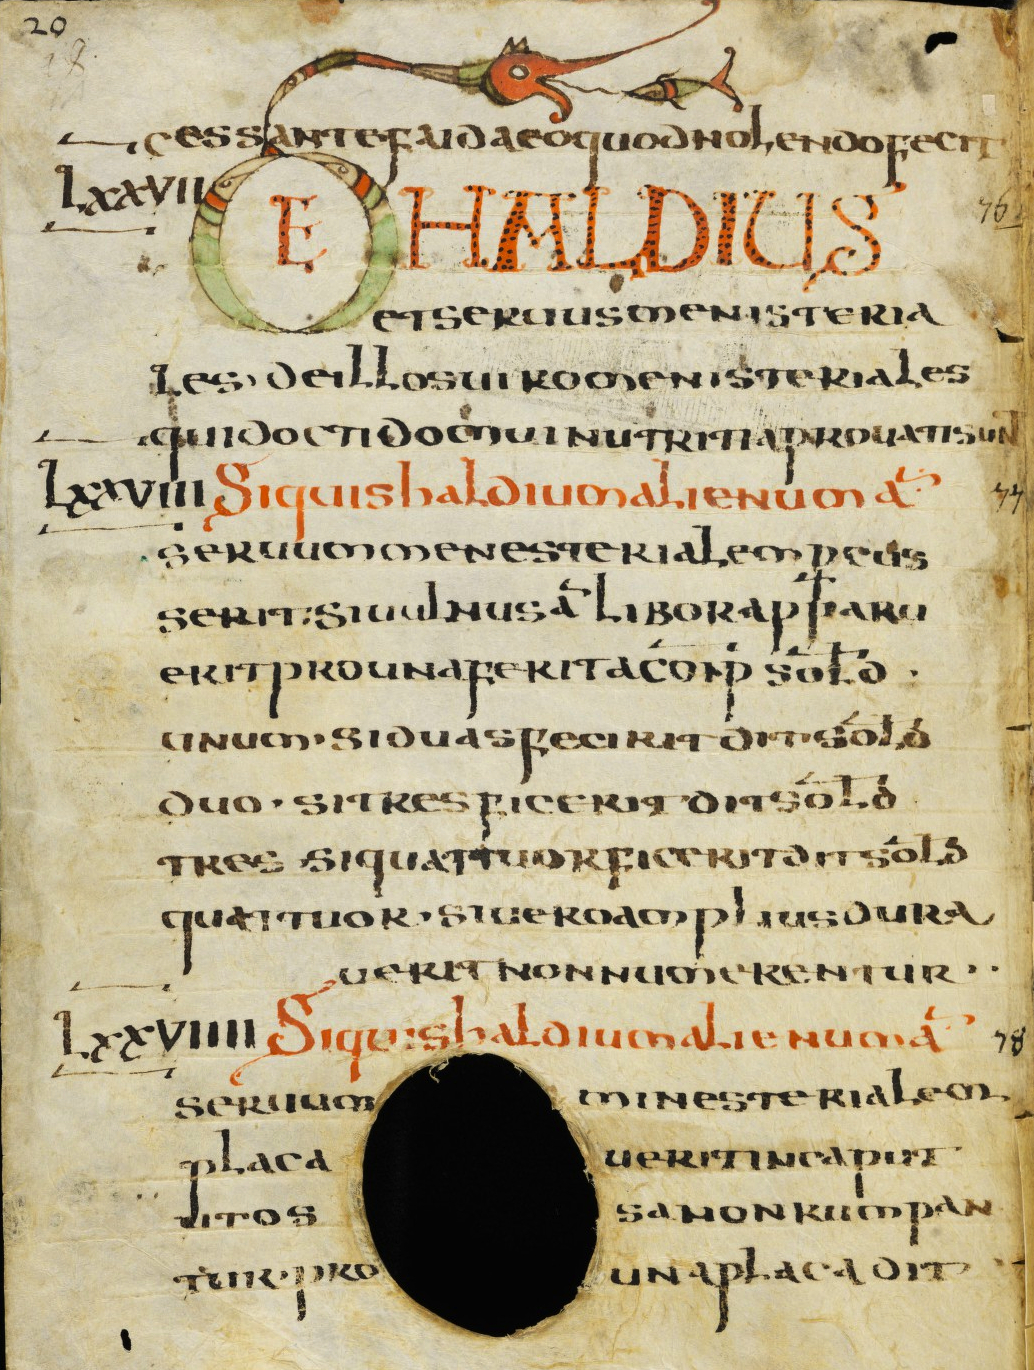 20
cessante faida eo quod nolendo fecit
LXXVII DE HALDIUS 76
et seruus menisteria
les, de illos uiro menisteriales
qui docti domui nutriti aprouati sunt
LXXVIII Si quis haldium alienum a͞t 77
seruum menesterialem pcus
serit, si uulnus a͞t libor apparu
erit pro una ferita co͞mp sol͞d ·
unum · si duas fecirit dit · sol͞d
duo · si tres ficerit dit sol͞d
tres si quattuor ficerit dit sol͞d
quattuor · si uero amplius dura
uerit non numerentur ··
LXXVIIII Si quis haldium alienum a͞t 78
seruum minesterialem
placa uerit in caput
ut os sa non rumpan
tur · pro una placa dit